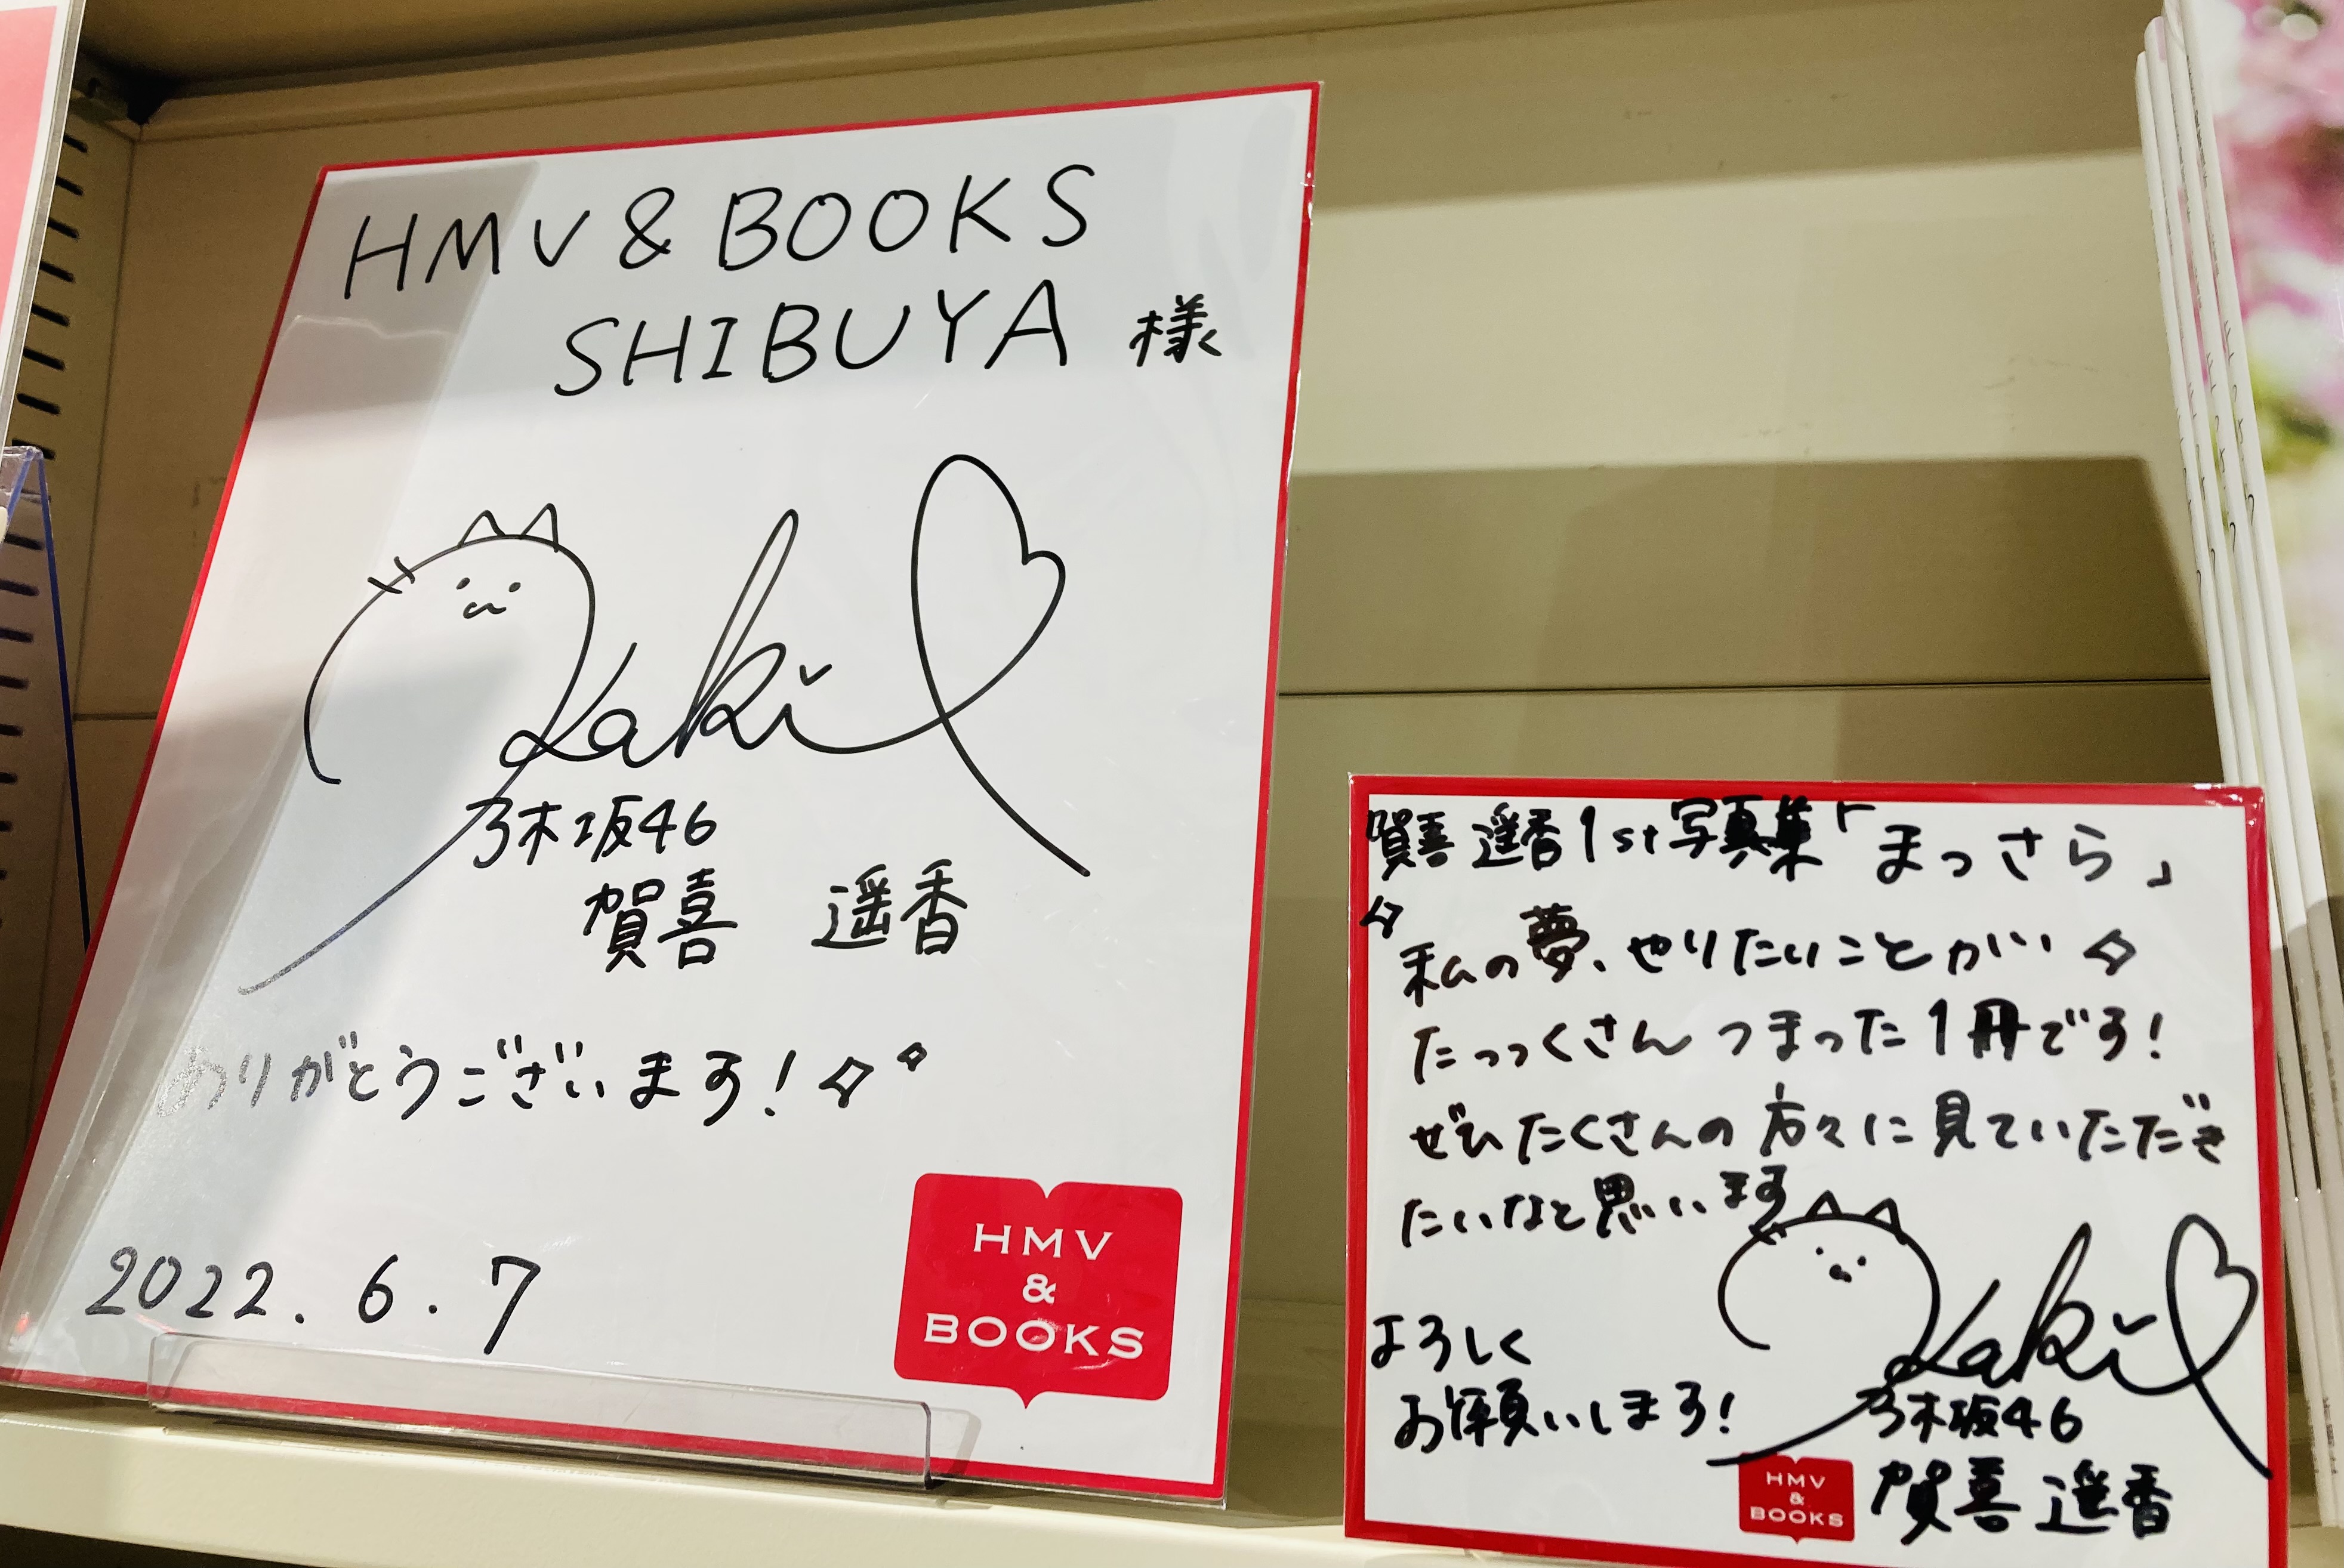 HMV & BOOKS
SHIBUYA 様
Kaki
乃木坂46
賀喜 遥香
ありがとうございます!
2022.6.7
HMV
&
BOOKS
賀喜 遥香 1st写真集「まっさら」
私の夢、やりたいことが
たっっくさんつまった1冊です!
ぜひたくさんの方々に見ていただき
たいなと思います
Kaki
よろしく
お願いします!
乃木坂46
賀喜 遥香
HMV
&
BOOKS